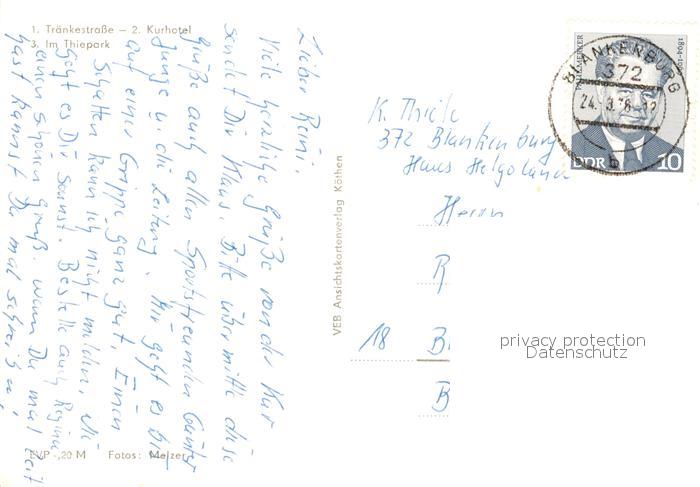 1. Tränkestraße – 2. Kurhotel
3. Im Thiepark
Lieber Reini,
Viele herzliche Grüße von der Kur
sendet Dir Klaus. Bitte übermittle diese
Grüße auch allen Sportfreunden Günter
Junge u. die Leitung. Mir geht es bis
auf einer Grippe ganz gut. Einen
Schatten kann ich nicht melden, wie
geht es Dir sonst. Bestelle auch Regina
einen schönen Gruß. Wenn Du mal Zeit
hast kannst Du mal schreiben!
EVP -,20 M Fotos: Melzer
VEB Ansichtskartenverlag Köthen
K. Thiele
372 Blankenburg
Haus Helgoland
Herrn
R
18 B
B
BLANKENBURG
372
24.-3.76-12
b
DDR 10
privacy protection
Datenschutz